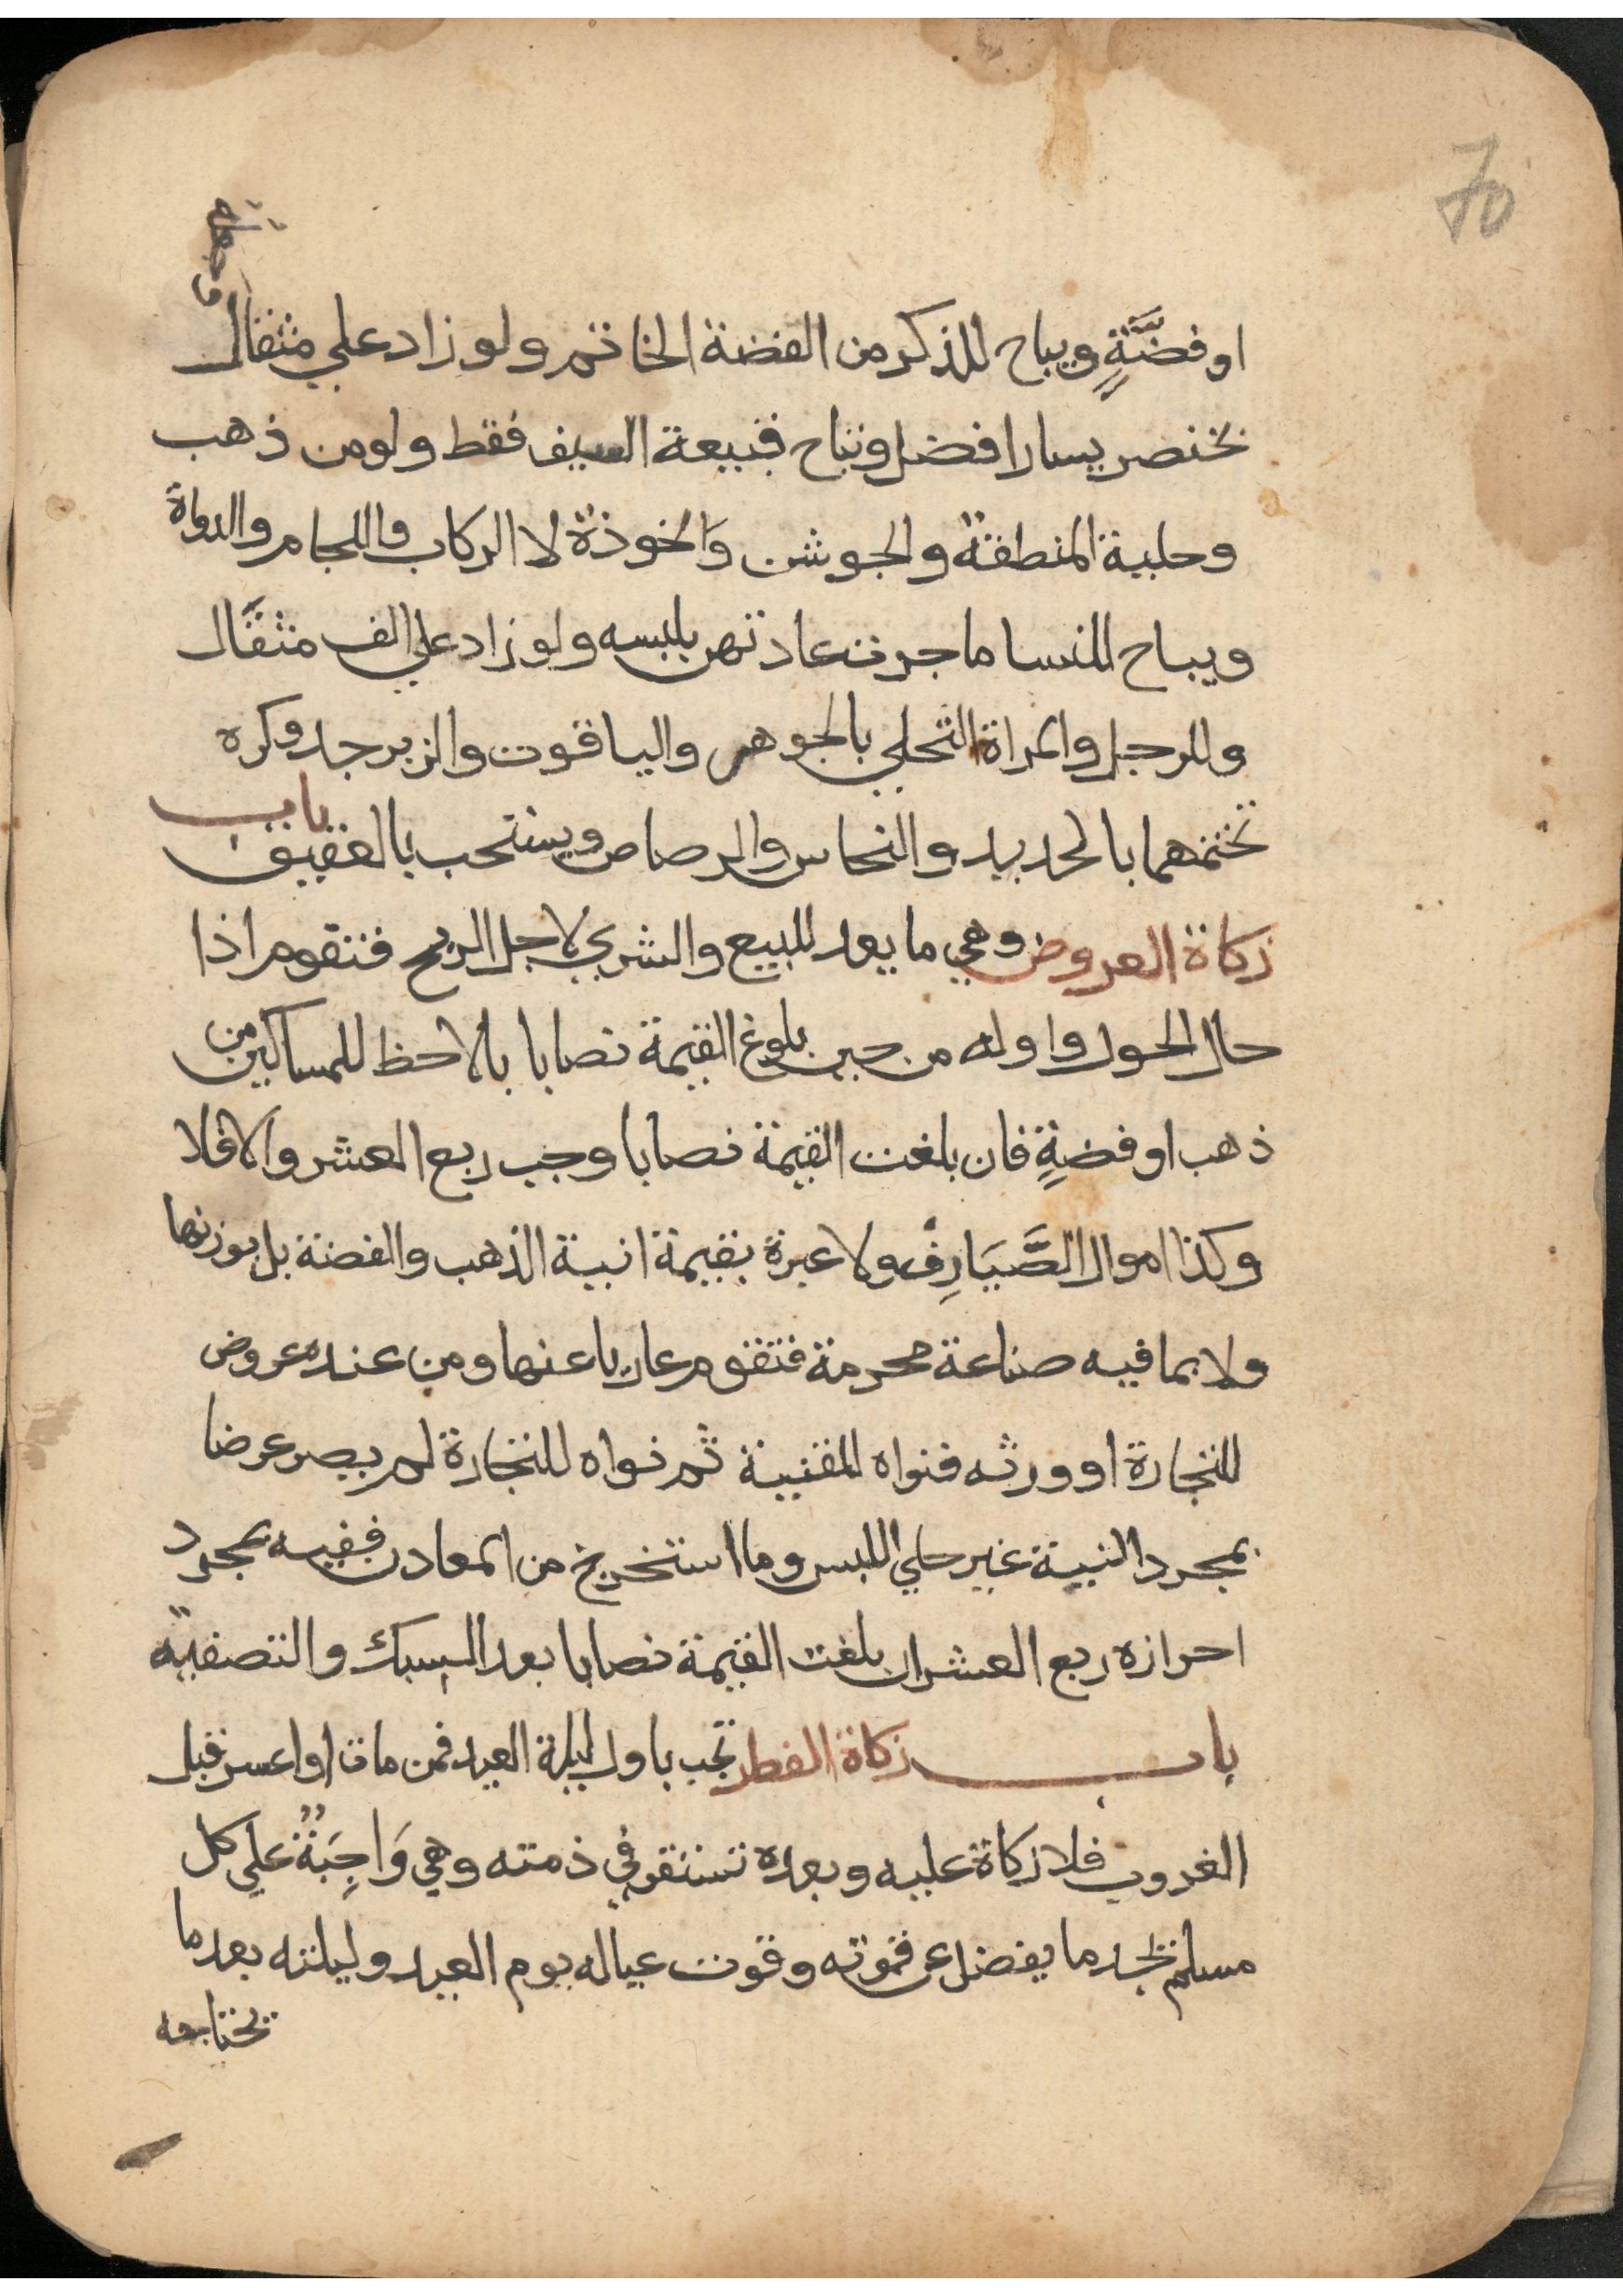 70
وجعله
او فضَّةٍ ويباح للذكر من الفضة الخاتم ولو زاد علي مثقال
بخنصر يسار افضل وتباح قبيعة السيف فقط ولو من ذهب
وحلية المنطقة والجوشن وَالخوذة لا الركاب واللجام والدواة
ويباح للنسا ما جرت عادتهن بلبسه ولو زاد علي الف مثقال
وللرجل والمراة التحلي بالجوهر والياقوت والزبرجد وكره
تختمهما بالحديد والنحاس والرصاص ويستحب بالعقيق باب
زكاة العروض وهي ما يعد للبيع والشري لاجل الربح فتقوم اذا
حال الحول واوله من حين بلوغ القيمة نصابا بالاحظ للمساكين من
ذهب او فضةٍ فان بلغت القيمة نصابا وجب ربع العشر والا فلا
وكذا اموال الصَّيَارِفِ ولا عبرة بقيمة انية الذهب والفضة بل بوزنها
ولا بما فيه صناعة محرمة فتقوم عاريا عنها ومن عنده عروض
للتجارة او ورثه فنواه للقنية ثم نواه للتجارة لم يصر عرضا
بمجرد النية غير حلي اللبس وما استخرج من المعادن ففيه بمجرد
احرازه ربع العشر ان بلغت القيمة نصابا بعد السبك والتصفية
باب زكاة الفطر تجب باول ليلة العيد فمن مات او اعسر قبل
الغروب فلا زكاة عليه وبعده تستقر في ذمته وهي وَاجِبَةٌ علي كل
مسلم يجد ما يفضل عن قموته وقوت عياله يوم العيد وليلته بعد ما
تحتاجه